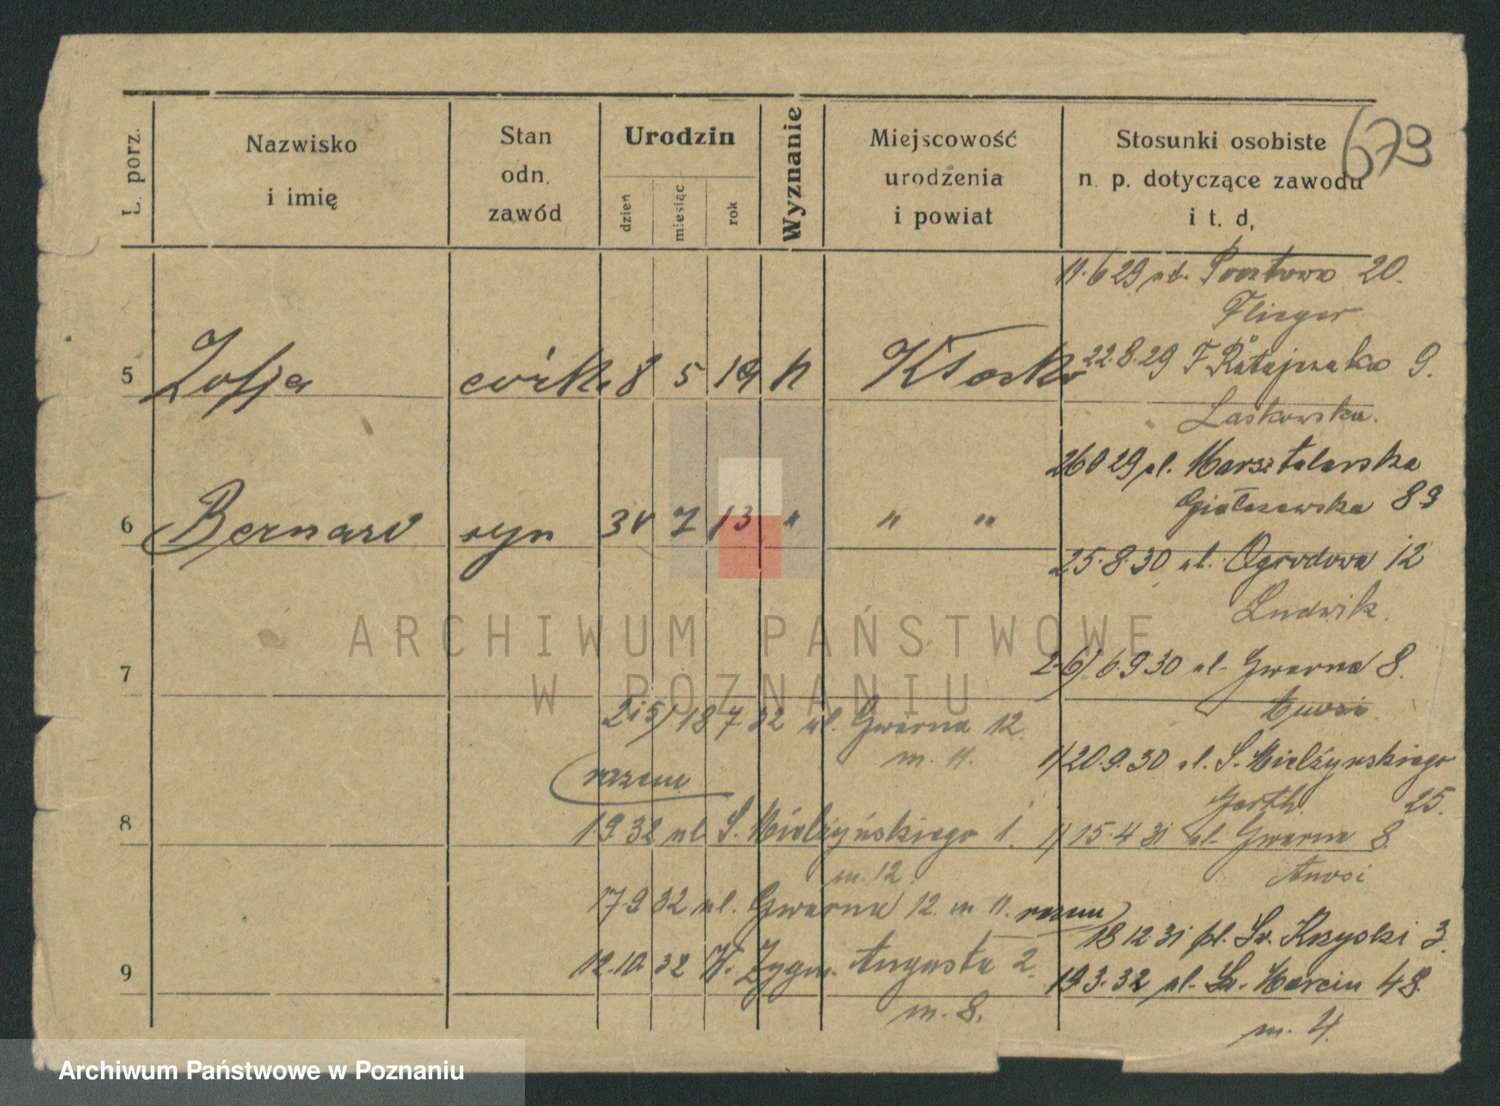 673
L. porz.
Nazwisko
i imię
Stan
odn.
zawód
Urodzin
dzień
miesiąc
rok
Wyznanie
Miejscowość
urodzenia
i powiat
Stosunki osobiste
n. p. dotyczące zawodu
i t. d.
11.6 29 ul. Pocztowa 20.
Flieger
5 Zofja córka 8 5 19
22.8.29 F Ratajczaka 9.
Laskowska.
29 ul. Masztalarska
83
6 Bernard syn 7 13 " " "
25.8.30 ul. Ogrodowa 12
Ludwik.
7
6.9 30 ul. Gwarna 8.
18 7 32 ul. Gwarna 12.
m. 11.
20.9.30 ul. S. Mielżyńskiego
25.
razem
8
1 9 32 ul S. Mielżyńskiego 1.
m. 12
15.4 31 ul. Gwarna 8.
17 9 32 ul. Gwarna 12. m 11. razem
18 12.31 pl. Św. Krzyski 3.
9
12.10.32 W. Zygm. Augusta 2.
m. 8.
19.3.32 ul. Św. Marcin 48.
m. 4.
ARCHIWUM PAŃSTWOWE
W POZNANIU
Archiwum Państwowe w Poznaniu